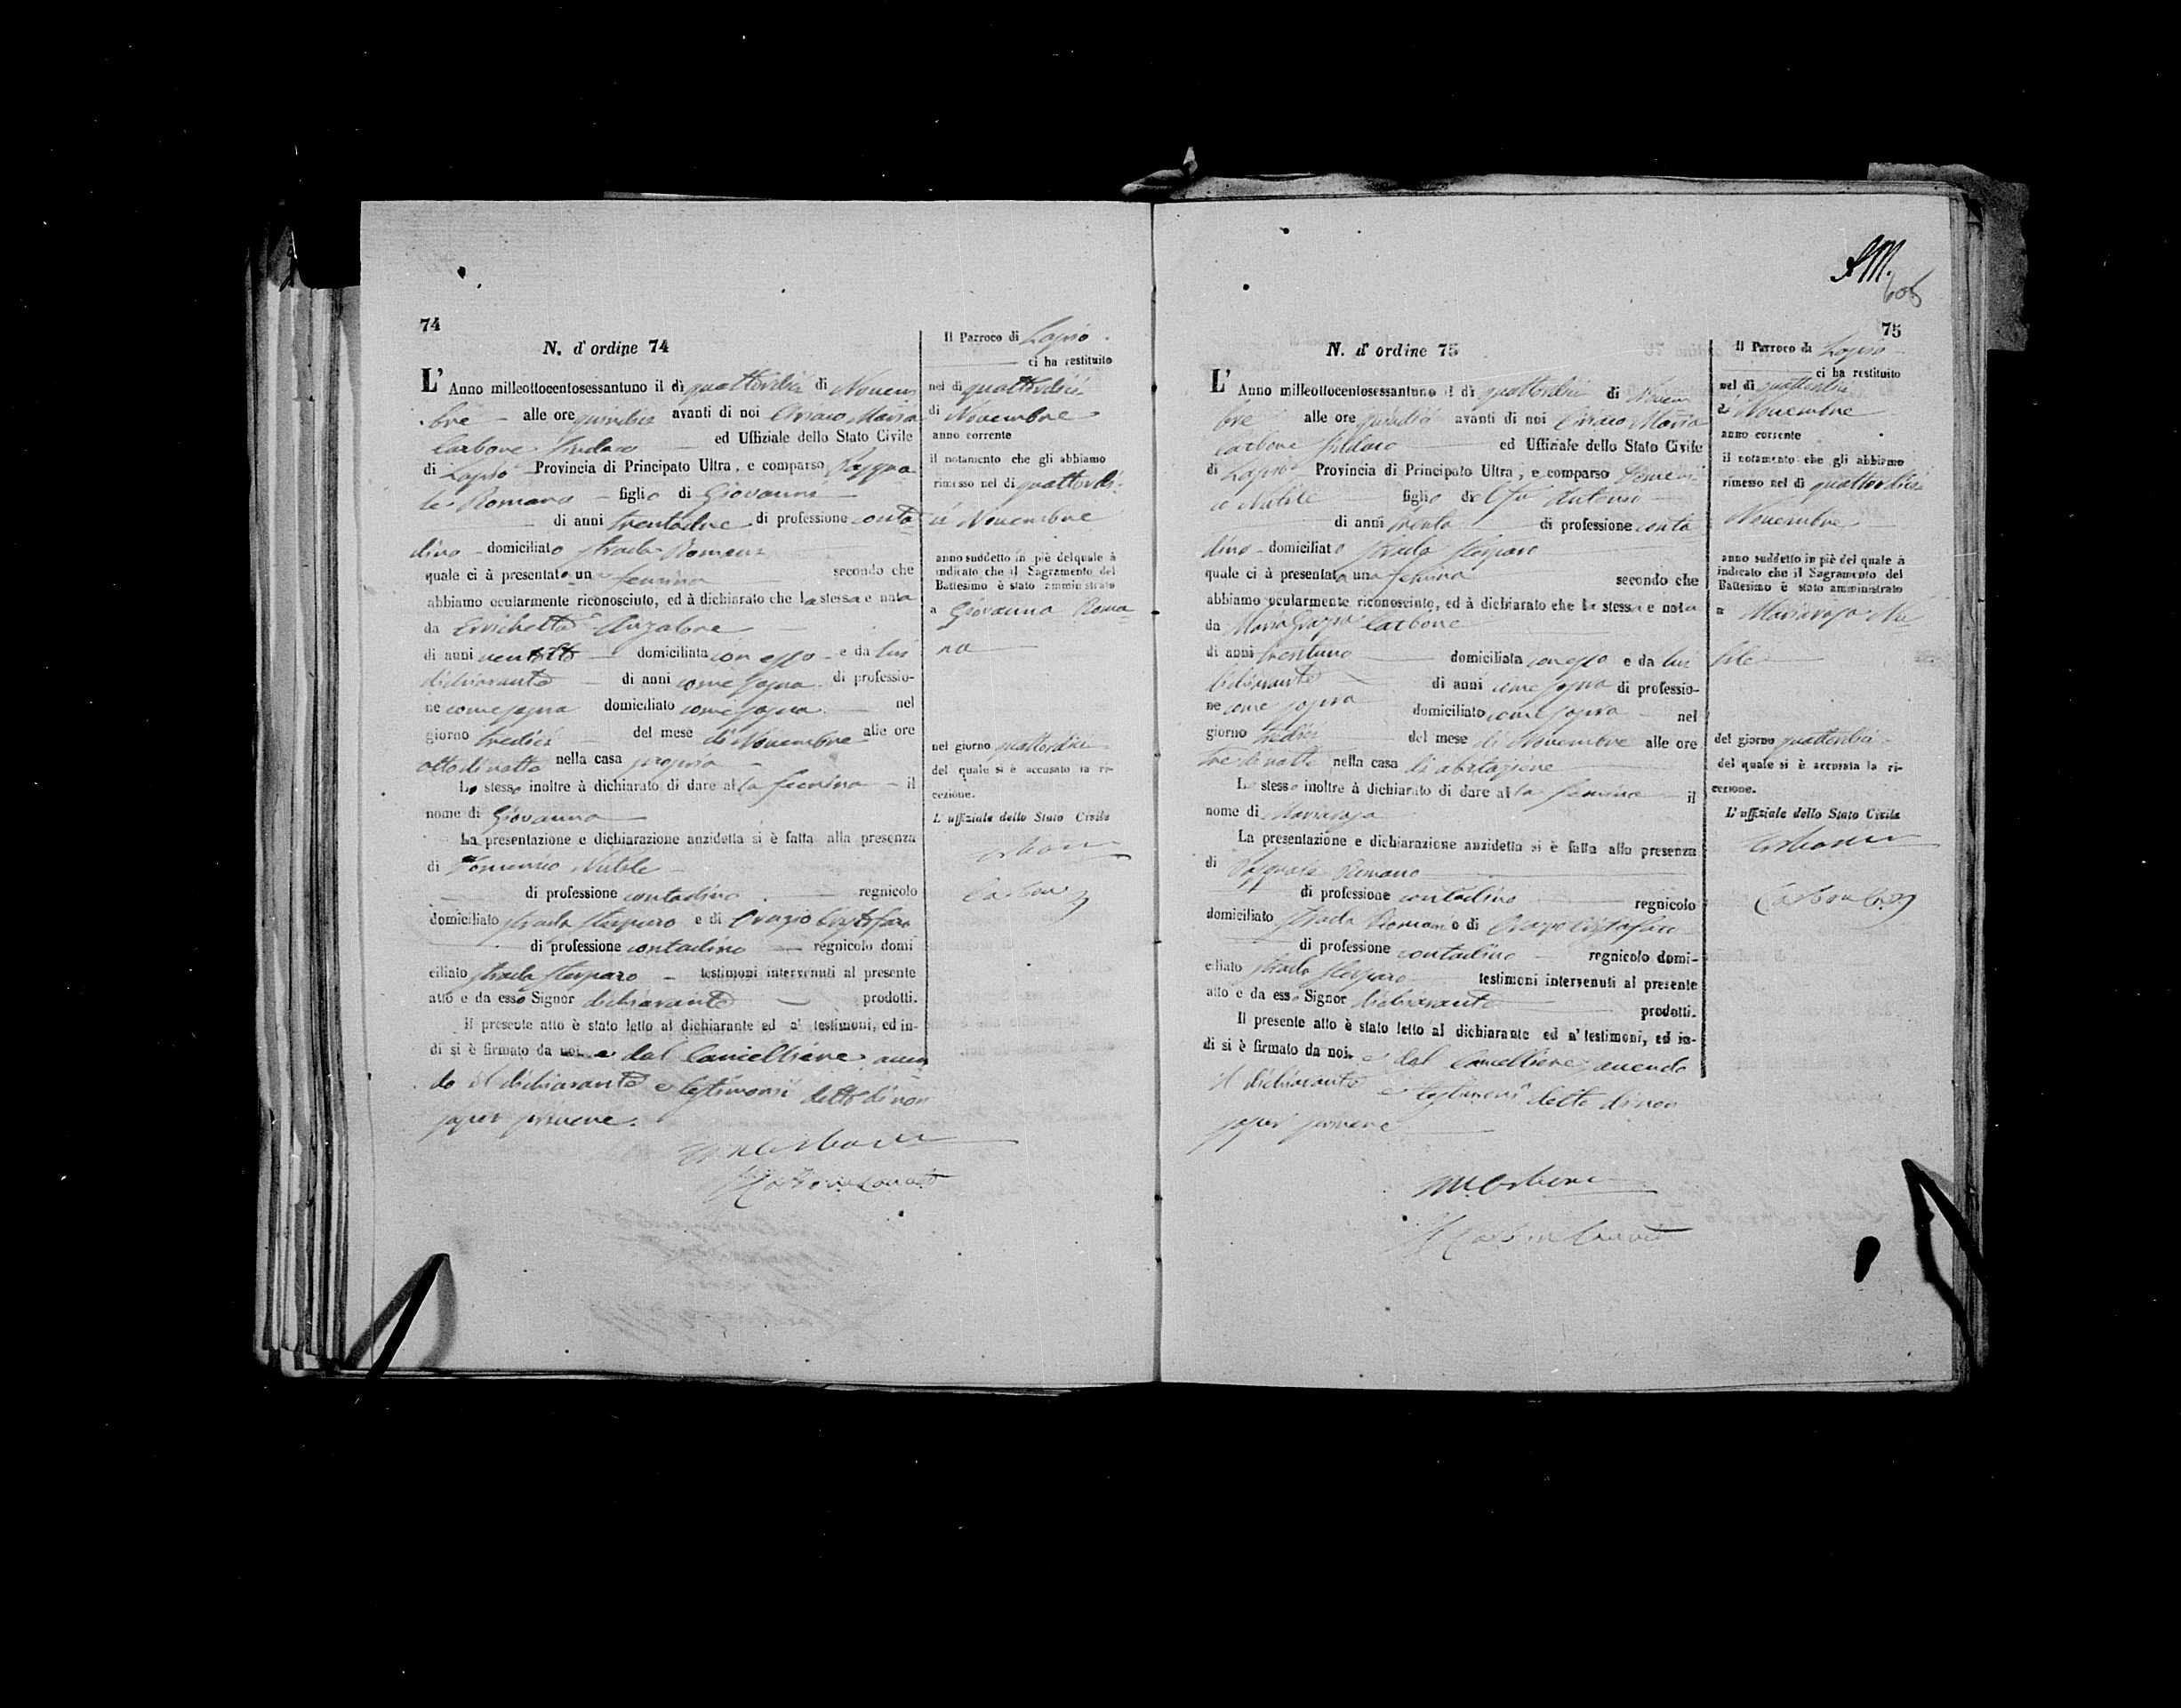 74
N. d'ordine 74
L'Anno milleottocentosessantuno il dì quattordici di Novem
bre alle ore quindici avanti di noi Ciriaco Maria
Carbone Sindaco ed Uffiziale dello Stato Civile
di Lapio Provincia di Principato Ultra, e comparso Pasqua
le Romano figlio di Giovanni
di anni trentadue di professione conta
dino domiciliato strada Romani
quale ci à presentato una femina secondo che
abbiamo ocularmente riconosciuto, ed à dichiarato che la stessa e nata
da Errichetta Anzalone
di anni ventotto domiciliata con esso e da lui
dichiarante di anni come sopra di professio-
ne come sopra domiciliato come sopra nel
giorno tredici del mese di Novembre alle ore
otto di notte nella casa propria
Lo stesso inoltre à dichiarato di dare alla femina il
nome di Giovanna
La presentazione e dichiarazione anzidetta si è fatta alla presenza
di Domenico Nutile
di professione contadino regnicolo
domiciliato strada e di Orazio Cristofaro
di professione contadino regnicolo domi
ciliato strada testimoni intervenuti al presente
atto e da esso Signor dichiarante prodotti.
Il presente atto è stato letto al dichiarante ed a' testimoni, ed in-
di si è firmato da noi e dal Cancelliere, aven
do il dichiarante e testimonii detto di non
saper scrivere.
Il Parroco di Lapio
ci ha restituito
nel dì quattordici
di Novembre
anno corrente
il notamento che gli abbiamo
rimesso nel dì quattordi-
ci Novembre
anno suddetto in piè del quale à
indicato che il Sagramento del
Battesimo è stato amministrato
a Giovanna Roma
no
nel giorno quattordici
del quale si è accusato la ri-
cezione.
L'uffiziale dello Stato Civile
Carbone
75
N. d'ordine 75
L'Anno milleottocentosessantuno il dì quattordici di Novem
bre alle ore quindici avanti di noi Ciriaco Maria
Carbone Sindaco ed Uffiziale dello Stato Civile
di Lapio Provincia di Principato Ultra, e comparso Domeni
co Nutile figlio del fu Antonio
di anni trenta di professione conta
dino domiciliato strada
quale ci à presentata una femina secondo che
abbiamo ocularmente riconosciuto, ed à dichiarato che la stessa e nata
da Maria Grazia Carbone
di anni trentuno domiciliata con esso e da lui
dichiarante di anni come sopra di professio-
ne come sopra domiciliato come sopra nel
giorno tredici del mese di Novembre alle ore
tre di notte nella casa di abitazione
Lo stesso inoltre à dichiarato di dare alla femina il
nome di Mariarosa
La presentazione e dichiarazione anzidetta si è fatta alla presenza
di Pasquale Romano
di professione contadino regnicolo
domiciliato strada Romani e di Orazio Cristofaro
di professione contadino regnicolo domi-
ciliato strada testimoni intervenuti al presente
atto e da esso Signor dichiarante prodotti.
Il presente atto è stato letto al dichiarante ed a' testimoni, ed in-
di si è firmato da noi e dal Cancelliere, avendo
il dichiarante e testimoni detto di non
saper scrivere
Il Parroco di Lapio
ci ha restituito
nel dì quattordici
di Novembre
anno corrente
il notamento che gli abbiamo
rimesso nel dì quattordici
Novembre
anno suddetto in piè del quale à
indicato che il Sagramento del
Battesimo è stato amministrato
a Mariarosa Nu
tile
del giorno quattordici
del quale si è accusata la ri-
cezione.
L'uffiziale dello Stato Civile
Carbone